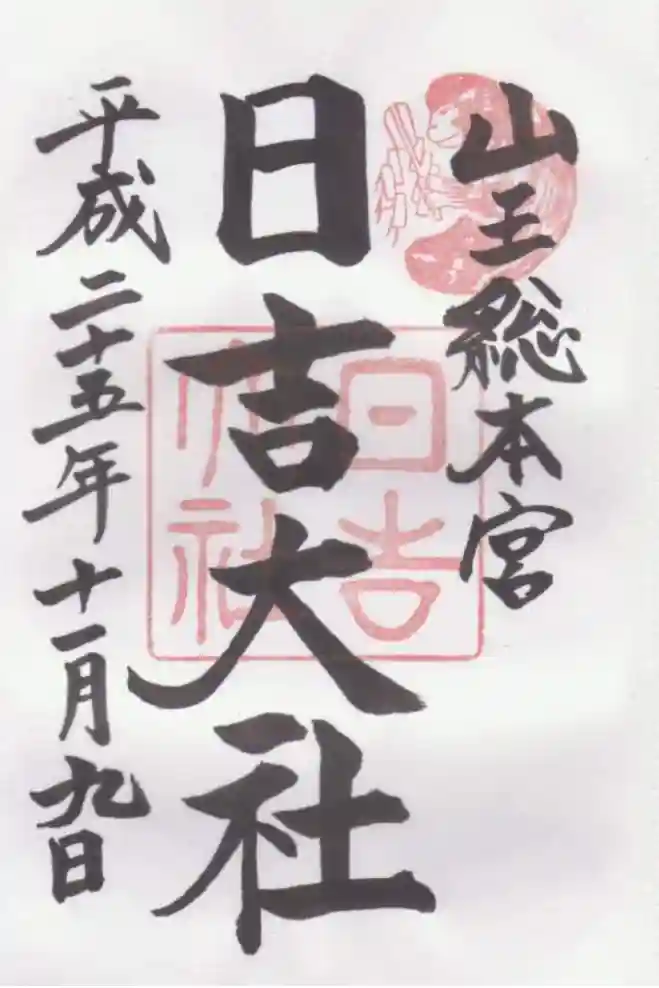 山王総本宮
日吉大社
日吉
大社
平成二十五年十一月九日